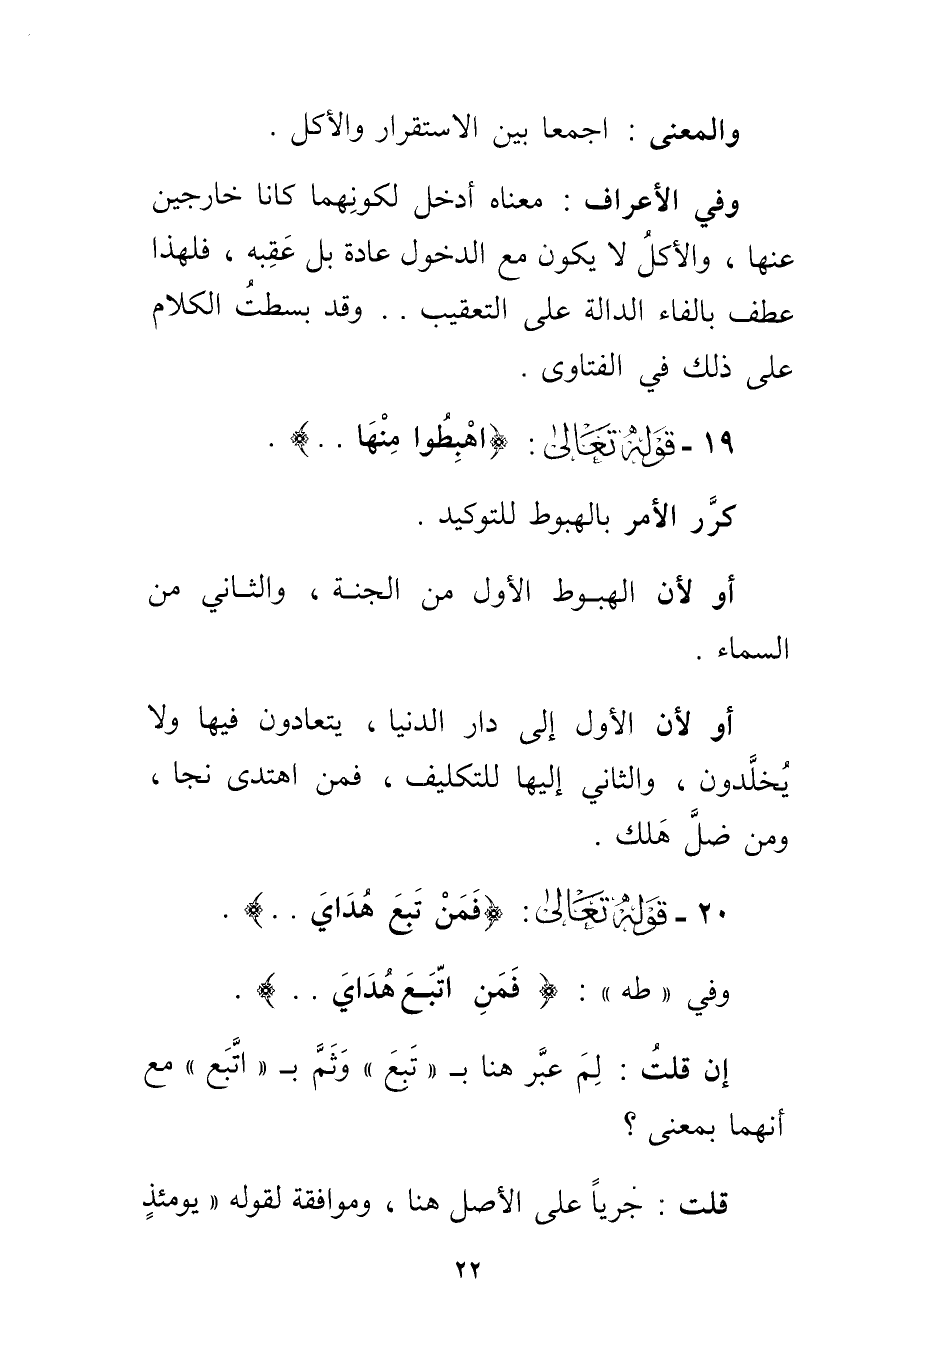 والمعنى : اجمعا بين الاستقرار والأكل .
وفي الأعراف : معناه أدخل لكونِهما كانا خارجين
عنها ، والأكلُ لا يكون مع الدخول عادة بل عَقِبه ، فلهذا
عطف بالفاء الدالة على التعقيب . . وقد بسطتُ الكلام
على ذلك في الفتاوى .
١٩ - قَوْلُهُ تَعَالَىٰ : ﴿اهْبِطُوا مِنْهَا . .﴾ .
كرَّر الأمر بالهبوط للتوكيد .
أو لأن الهبـوط الأول من الجنـة ، والثـاني من
السماء .
أو لأن الأول إلى دار الدنيا ، يتعادون فيها ولا
يُخلَّدون ، والثاني إليها للتكليف ، فمن اهتدى نجا ،
ومن ضلَّ هَلك .
٢٠ - قَوْلُهُ تَعَالَىٰ : ﴿فَمَنْ تَبِعَ هُدَايَ . .﴾ .
وفي « طه » : ﴿ فَمَنِ اتَّبَـعَ هُدَايَ . . ﴾ .
إن قلتُ : لِمَ عبَّر هنا بـ « تَبِعَ » وَثَمَّ بـ « اتَّبَع » مع
أنهما بمعنى ؟
قلت : جَرياً على الأصل هنا ، وموافقة لقوله « يومئذٍ
٢٢